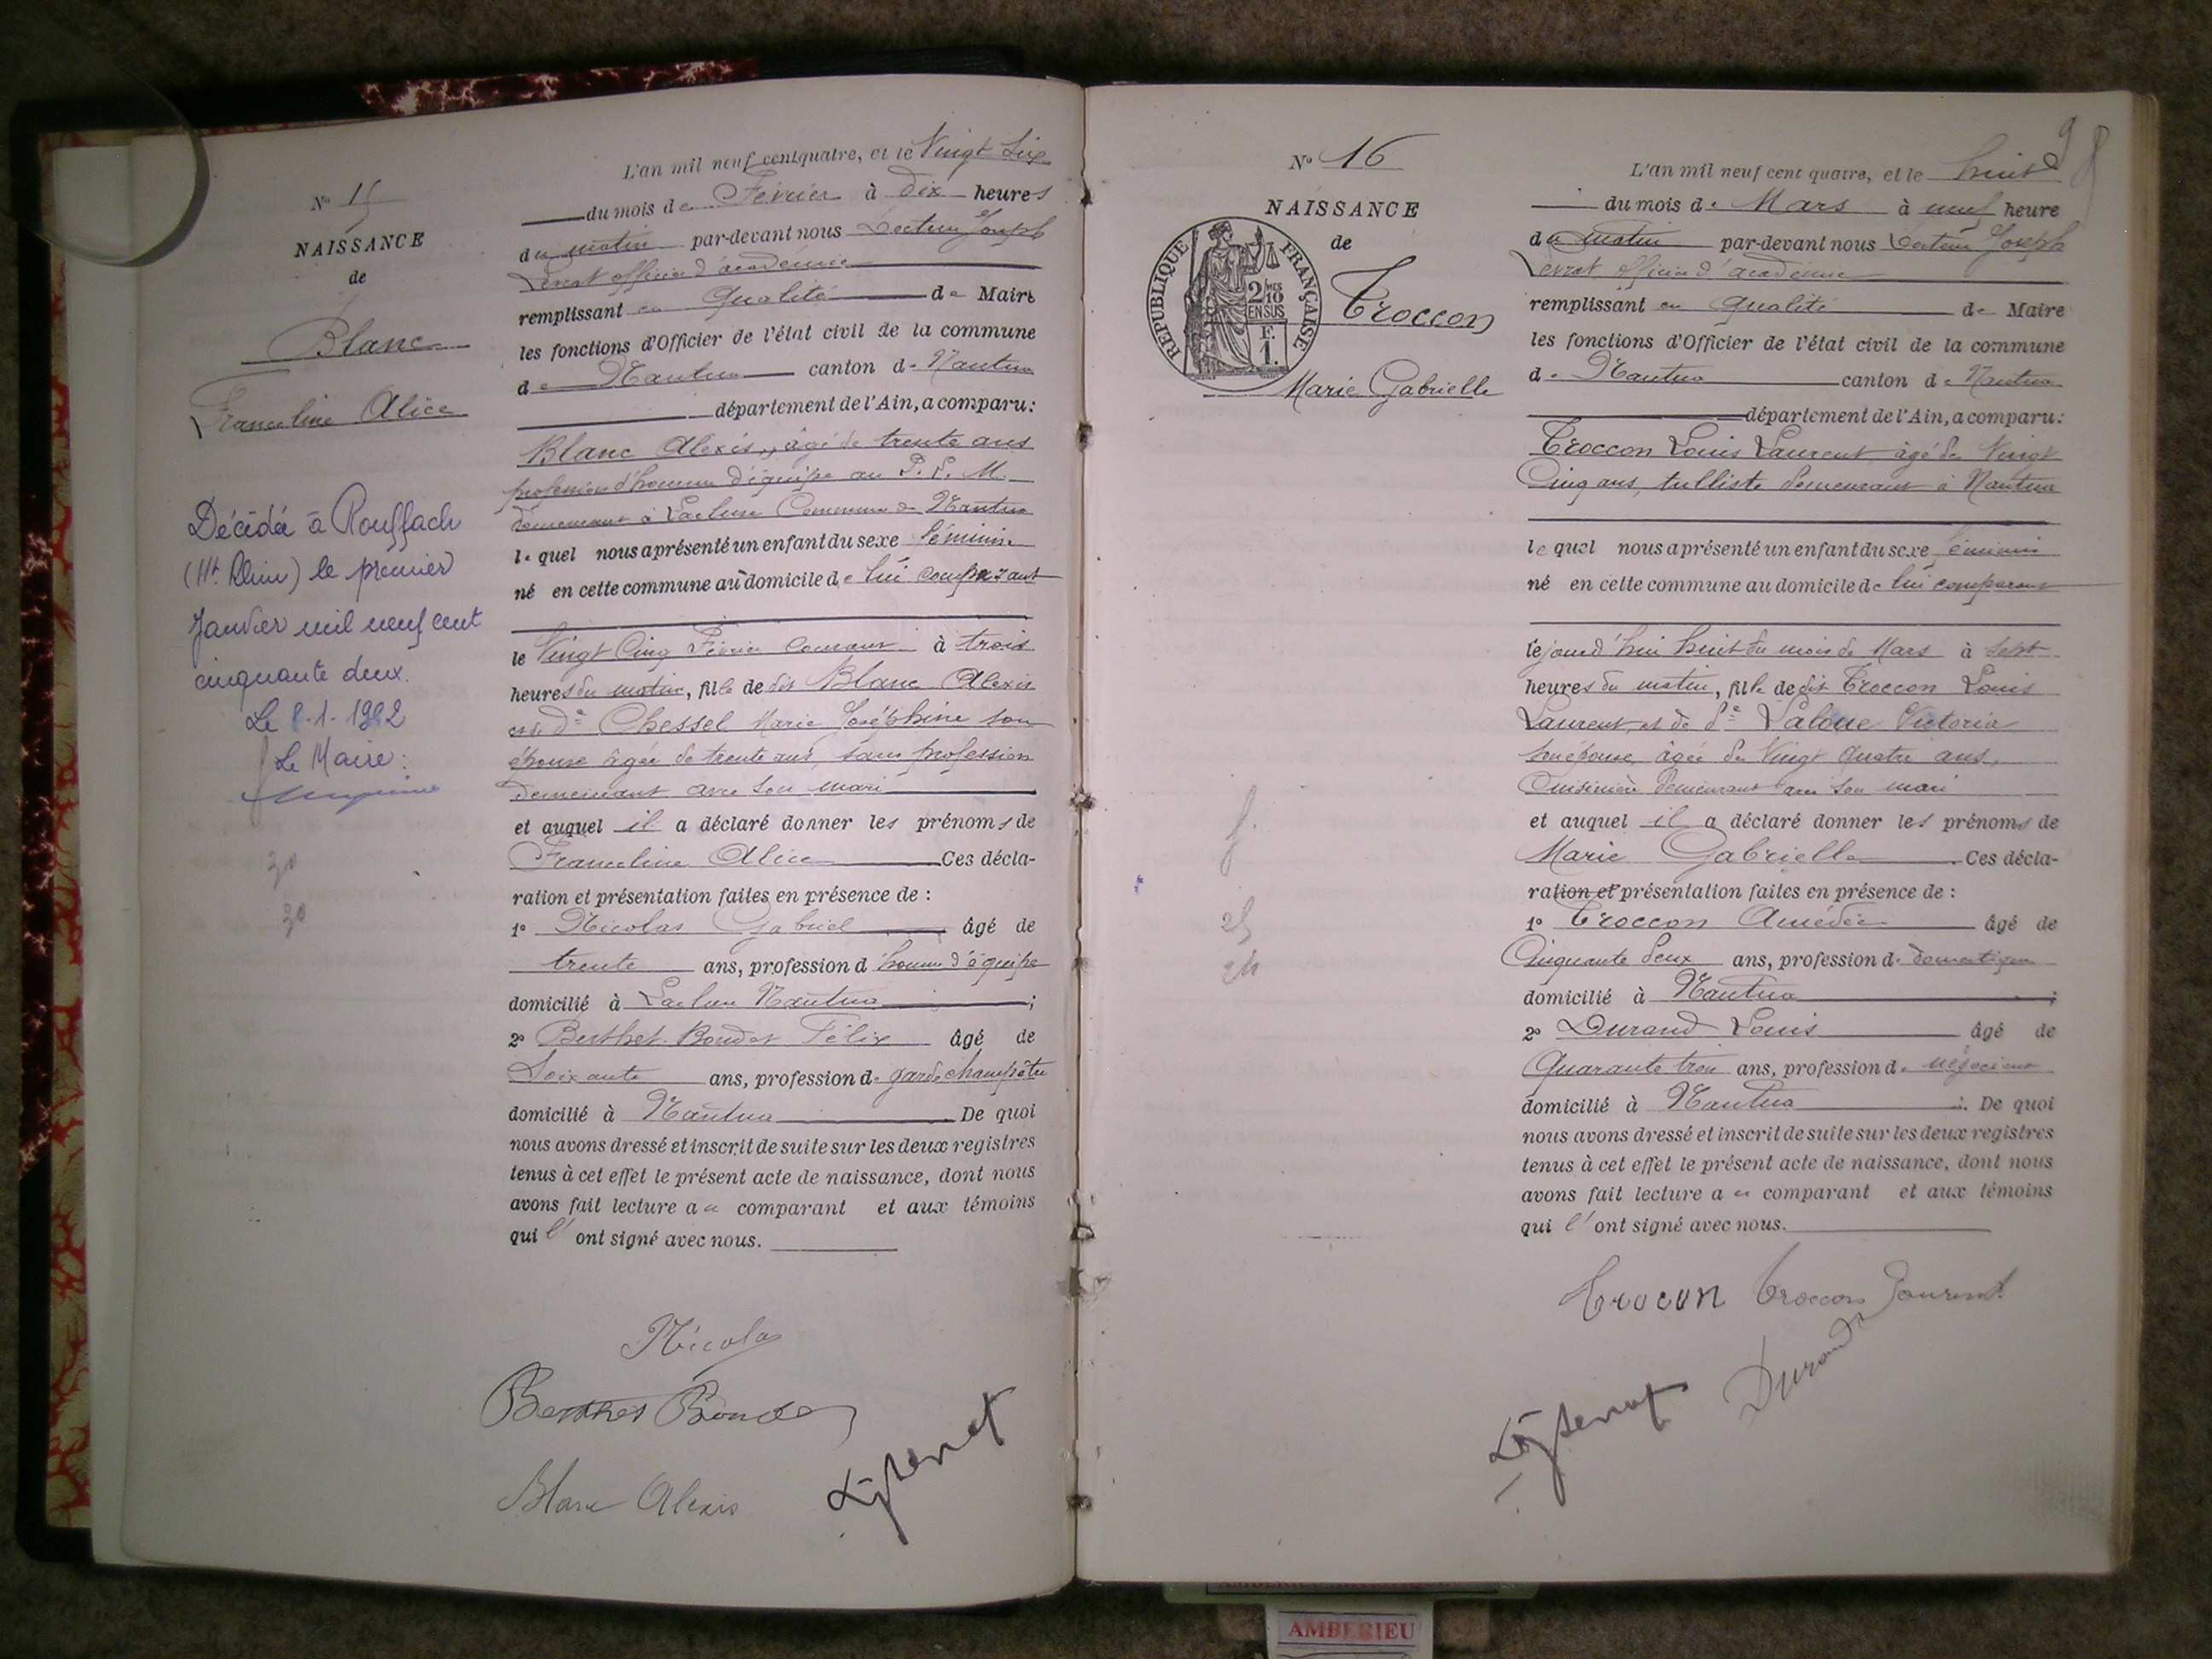 N° 15
NAISSANCE
de
Blanc
Franceline Alice
Décédée à Rouffach
(Ht Rhin) le premier
Janvier mil neuf cent
cinquante deux.
Le 8-1-1952
Le Maire:
30
30
L'an mil neuf cent quatre, et le Vingt Six
du mois de Février à dix heures
du matin par-devant nous Docteur Joseph
officier d'académie
remplissant en qualité de Maire
les fonctions d'Officier de l'état civil de la commune
de Nantua canton de Nantua
département de l'Ain, a comparu:
Blanc Alexis, âgé de trente ans
profession d'homme d'équipe au P. L. M.
demeurant à Lacluse Commune de Nantua
lequel nous a présenté un enfant du sexe féminin
né en cette commune au domicile de lui comparant
le Vingt Cinq Février courant à trois
heures du matin, fille de dit Blanc Alexis
et de de Chessel Marie Joséphine son
épouse âgée de trente ans, sans profession
demeurant avec son mari
et auquel il a déclaré donner les prénoms de
Franceline Alice Ces décla-
ration et présentation faites en présence de :
1° Nicolas Gabriel âgé de
trente ans, profession d'homme d'équipe
domicilié à Lacluse Nantua ;
2° Berthet-Bondet Félix âgé de
Soixante ans, profession de garde champêtre
domicilié à Nantua De quoi
nous avons dressé et inscrit de suite sur les deux registres
tenus à cet effet le présent acte de naissance, dont nous
avons fait lecture au comparant et aux témoins
qui l'ont signé avec nous.
Nicolas
Berthet Bondet
Blanc Alexis
N° 16
NAISSANCE
de
RÉPUBLIQUE FRANÇAISE
2/10 MES
EN SUS
F.
1.
Troccon
Marie Gabrielle
25
24
98
L'an mil neuf cent quatre, et le huit
du mois de Mars à neuf heure
du matin par-devant nous Docteur Joseph
officier d'académie
remplissant en qualité de Maire
les fonctions d'Officier de l'état civil de la commune
de Nantua canton de Nantua
département de l'Ain, a comparu:
Troccon Louis Laurent âgé de Vingt
Cinq ans, tulliste demeurant à Nantua
lequel nous a présenté un enfant du sexe féminin
né en cette commune au domicile de lui comparant
le jourd'hui huit du mois de Mars à sept
heures du matin, fille de dit Troccon Louis
Laurent, et de de Laloue Victoria
son épouse, âgée de Vingt quatre ans,
Cuisinière demeurant avec son mari
et auquel il a déclaré donner les prénoms de
Marie Gabrielle Ces décla-
ration et présentation faites en présence de :
1° Troccon Amédée âgé de
Cinquante deux ans, profession de domestique
domicilié à Nantua ;
2° Durand Louis âgé de
Quarante trois ans, profession de négociant
domicilié à Nantua . De quoi
nous avons dressé et inscrit de suite sur les deux registres
tenus à cet effet le présent acte de naissance, dont nous
avons fait lecture au comparant et aux témoins
qui l'ont signé avec nous.
Trocon Troccon Laurent
Durand
AMBERIEU